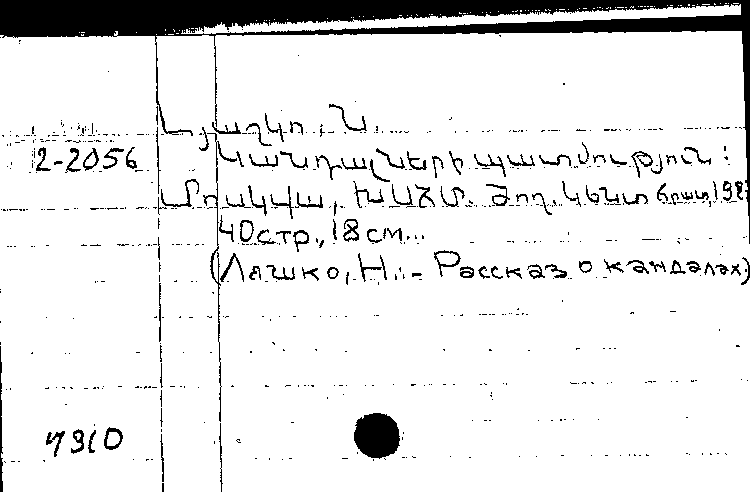 Լյաշկո, Ն.
2-2056 Կանդալների պատմություն:
Մոսկվա, ԽՍՀՄ. Ժող. Կենտ հրատ, 198
40 стр., 18 см...
(Ляшко, Н.. - Рассказ о кандалах)
7310